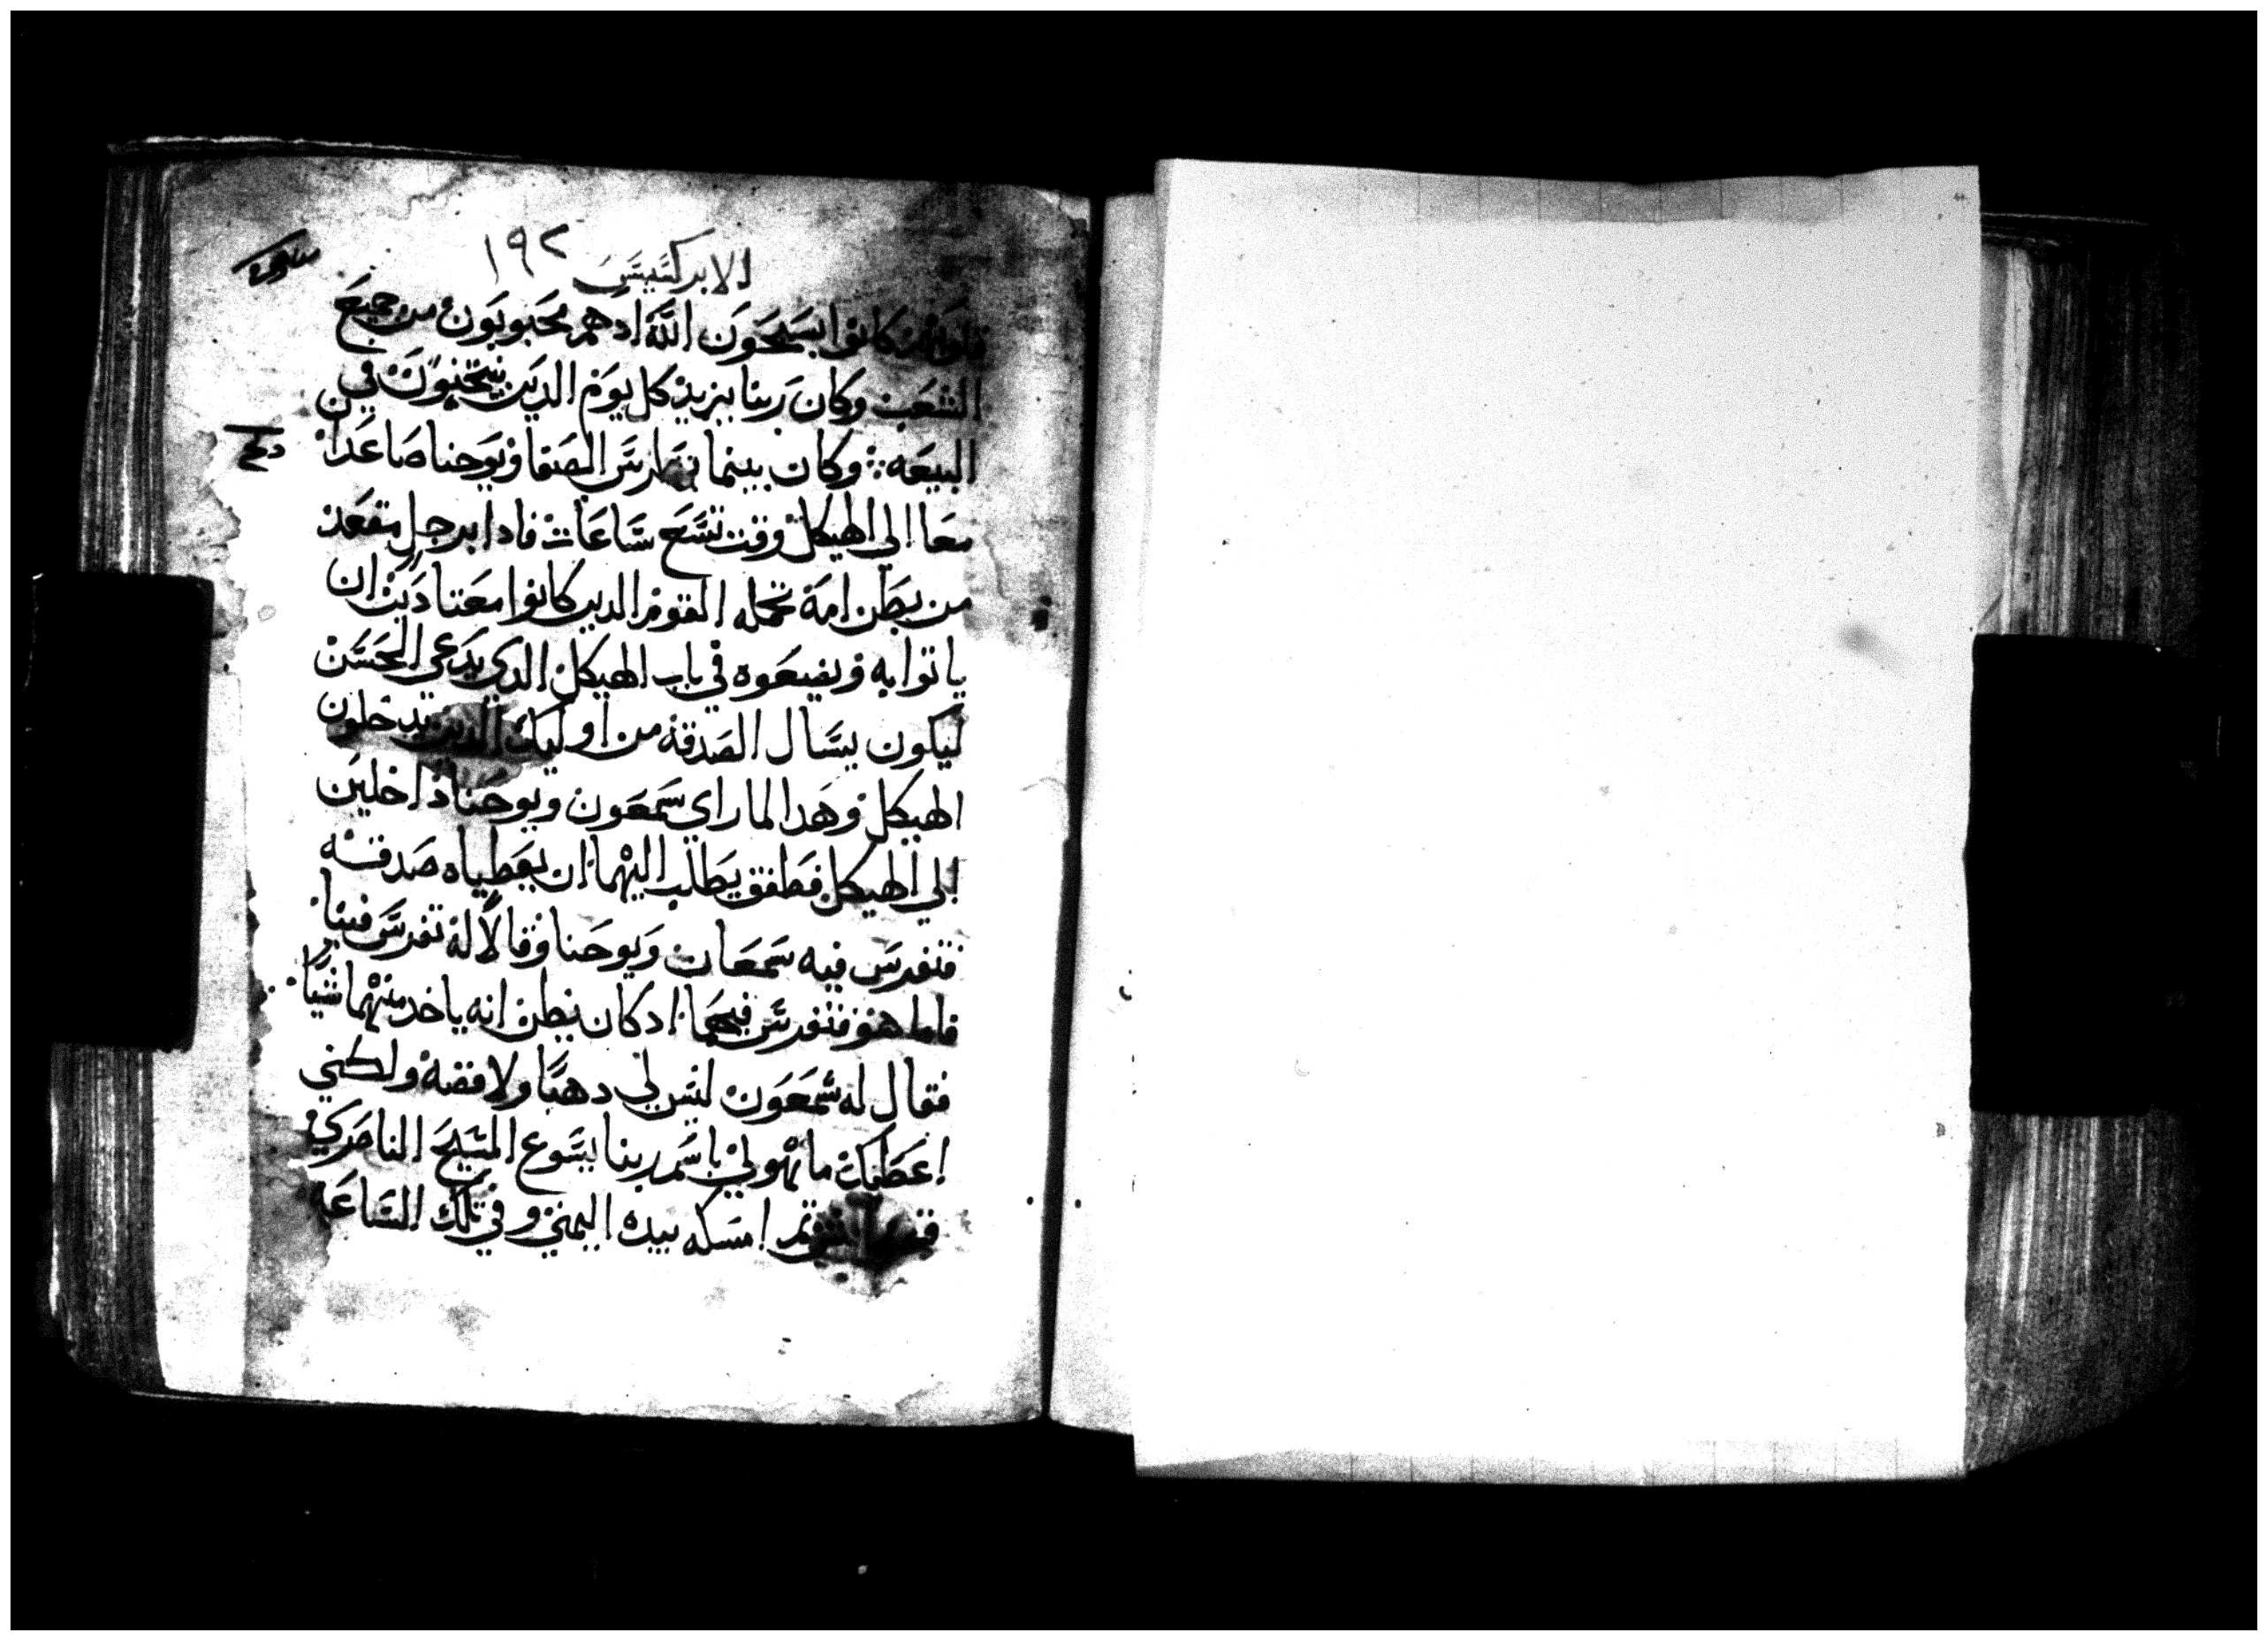 الابركسيس ١٩٢
كانوا يسبحون الله ادهم محبوبون من جميع
الشعب وكان ربنا يزيد كل يوم الدين ينجون في
البيعه وكان بينما بطرس الصفا ويوحنا صاعدان
معا الي الهيكل وقت تسع ساعات فادا برجل مقعد
من بطن امه تحمله القوم الدين كانوا معتادين ان
ياتوا به ويضعوه في باب الهيكل الدي يدعي الحسن
ليكون يسال الصدقة من اوليك الدين يدخلون
الهيكل وهدا لما راي سمعون ويوحنا داخلين
الي الهيكل فطفق يطلب اليهما ان يعطياه صدقه
فتفرس فيه سمعان ويوحنا وقالا له تفرس فينا
فاما هو فتفرس فيهما ادكان يظن انه ياخد منهما شيا
فقال له شمعون ليس لي دهبا ولا فضه ولكني
اعطيك ما هو لي باسم ربنا يسوع المسيح الناصري
امسكه بيده اليمني وفي تلك الساعه